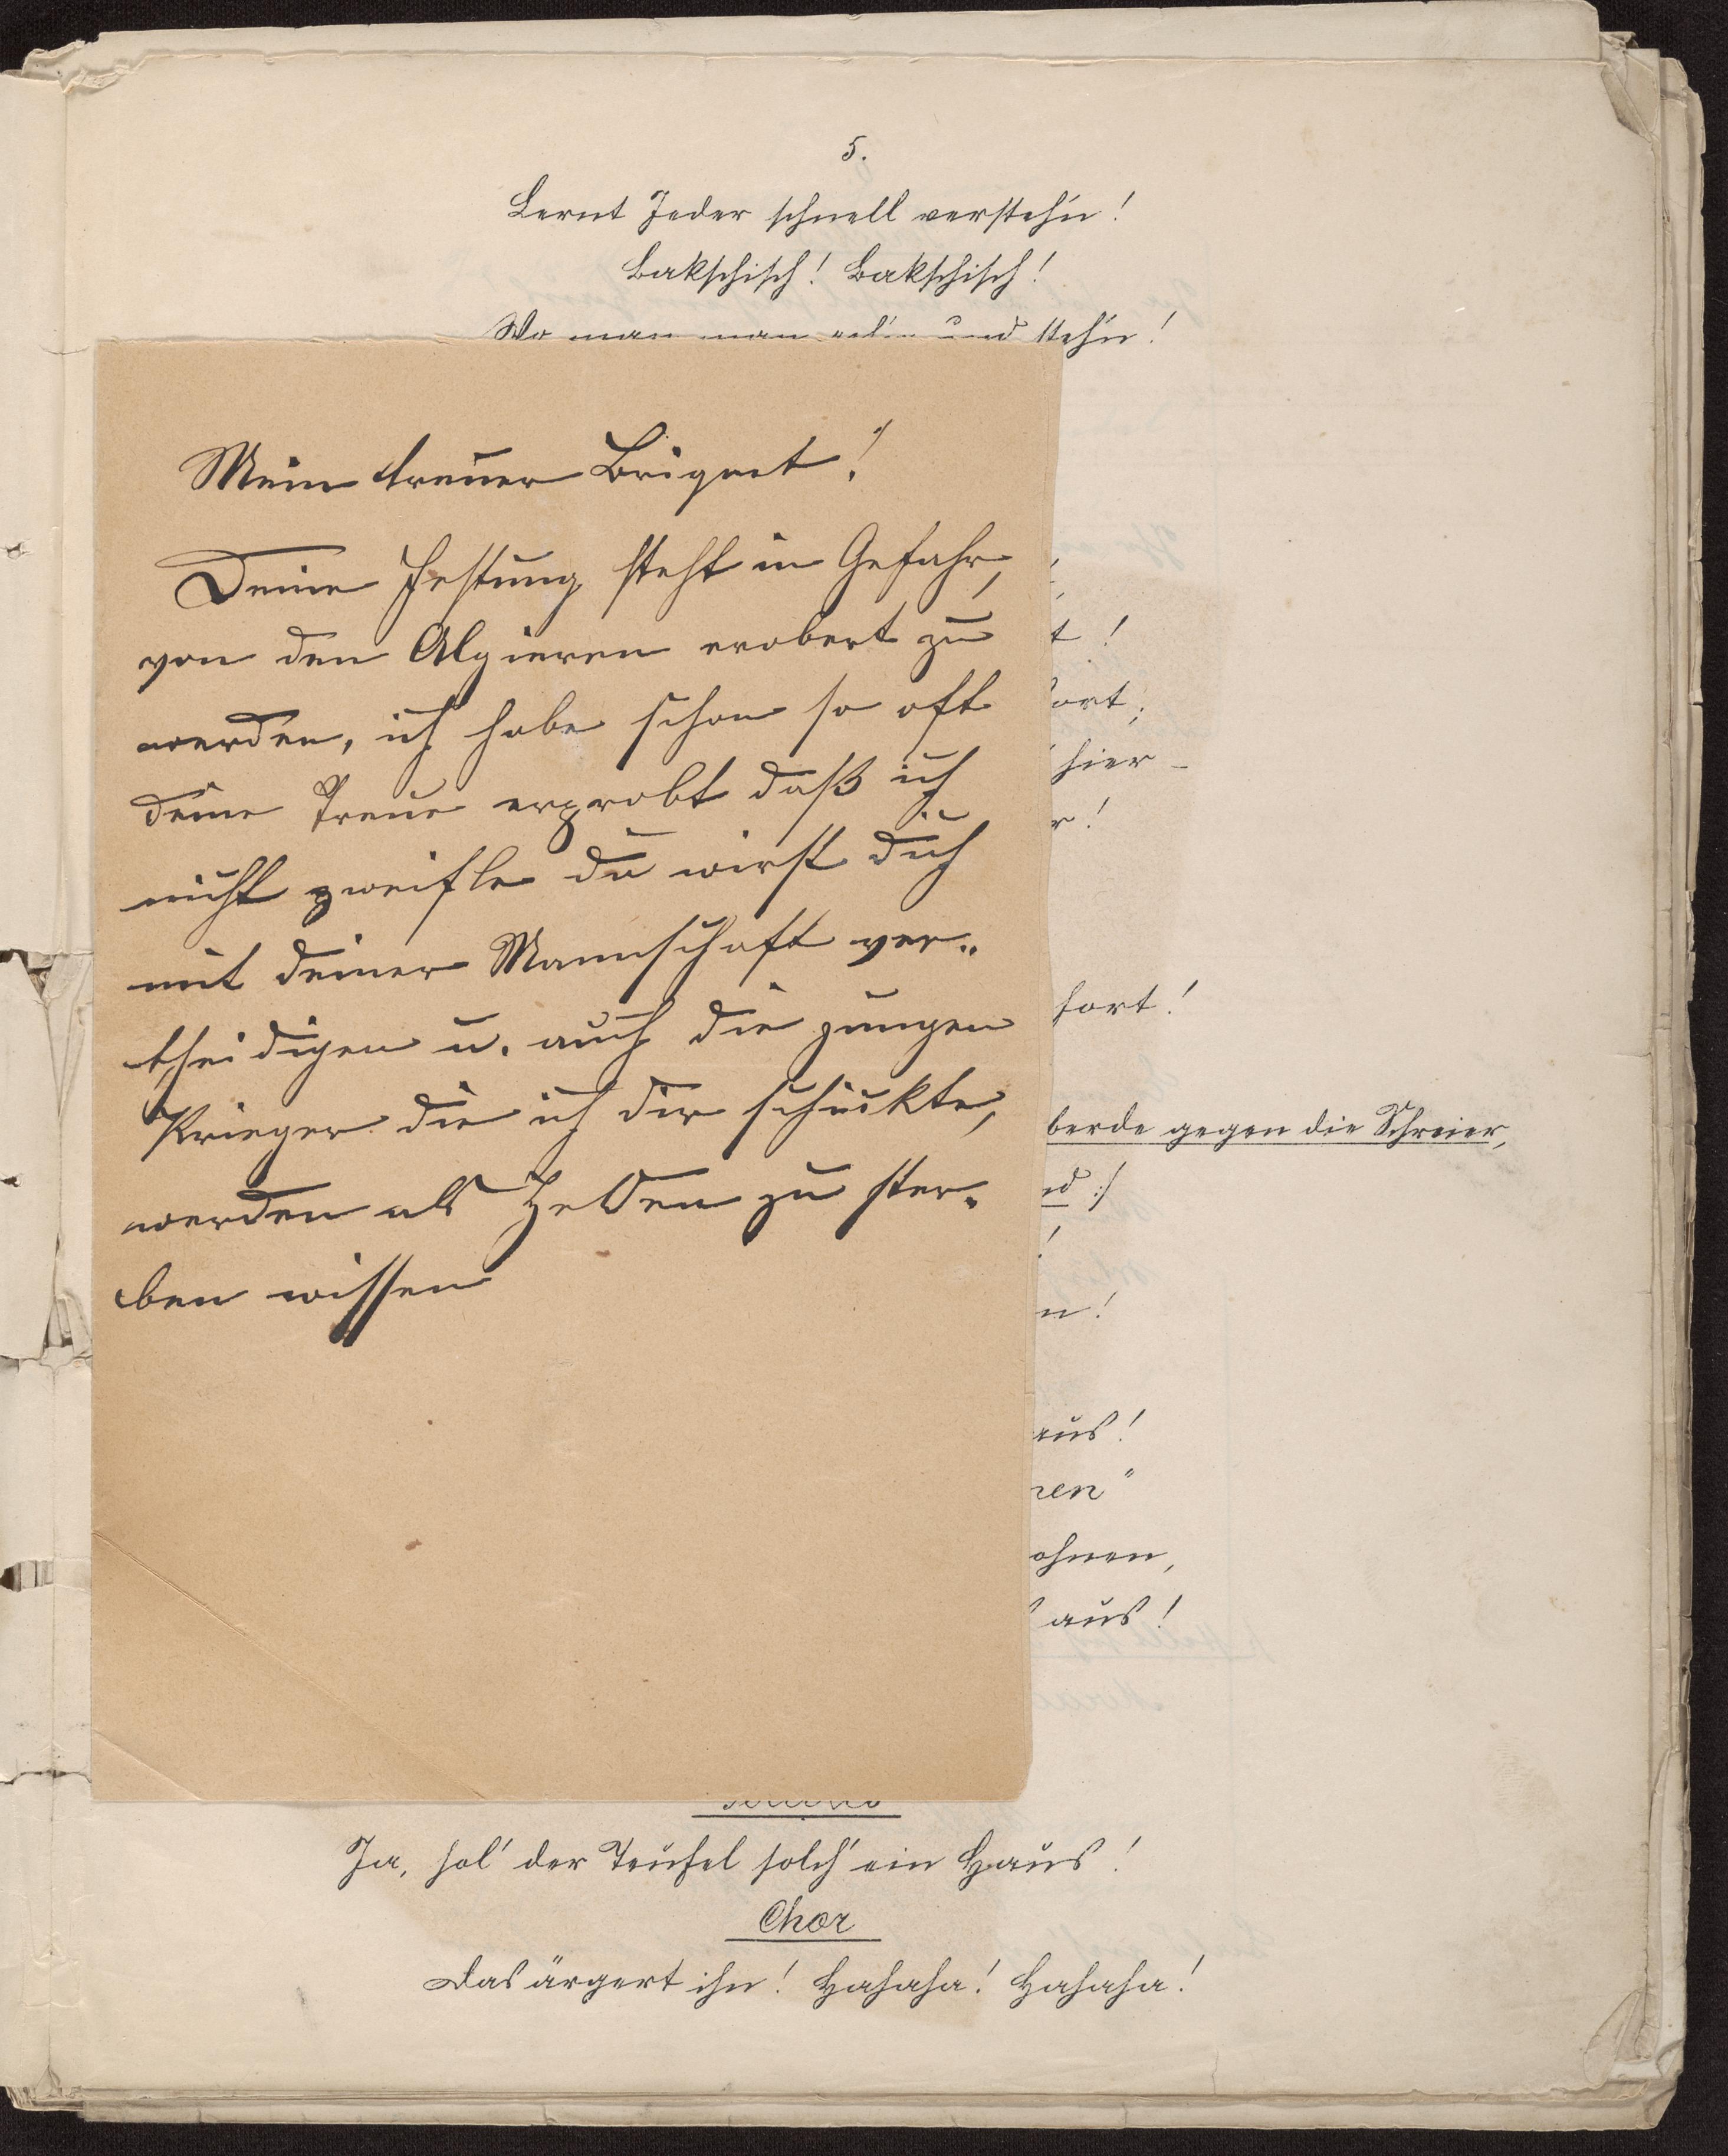 5.
Lernt Jeder schnell versteh'n!
Bakschisch! Bakschisch!
Wo man man geh'n und steh'n!
Mein treuer Briquet!
Deine Festung steht in Gefahr,
von den Algieren erobert zu
werden, ich habe schon so oft
deine Treue erprobt daß ich
nicht zweifle du wirst dich
mit deiner Mannschaft ver„
theidigen u. auch die jungen
Krieger die ich dir schickte,
werden als Helden zu ster„
ben wissen
t!
ort;
hier –
r!
fort!
berde gegen die Schreier,
nd :/
n!
aus!
nen"
ohnen,
aus!
Ja, hol' der Teufel solch' ein Haus!
Chor
Das ärgert ihn! Hahaha! Hahaha!